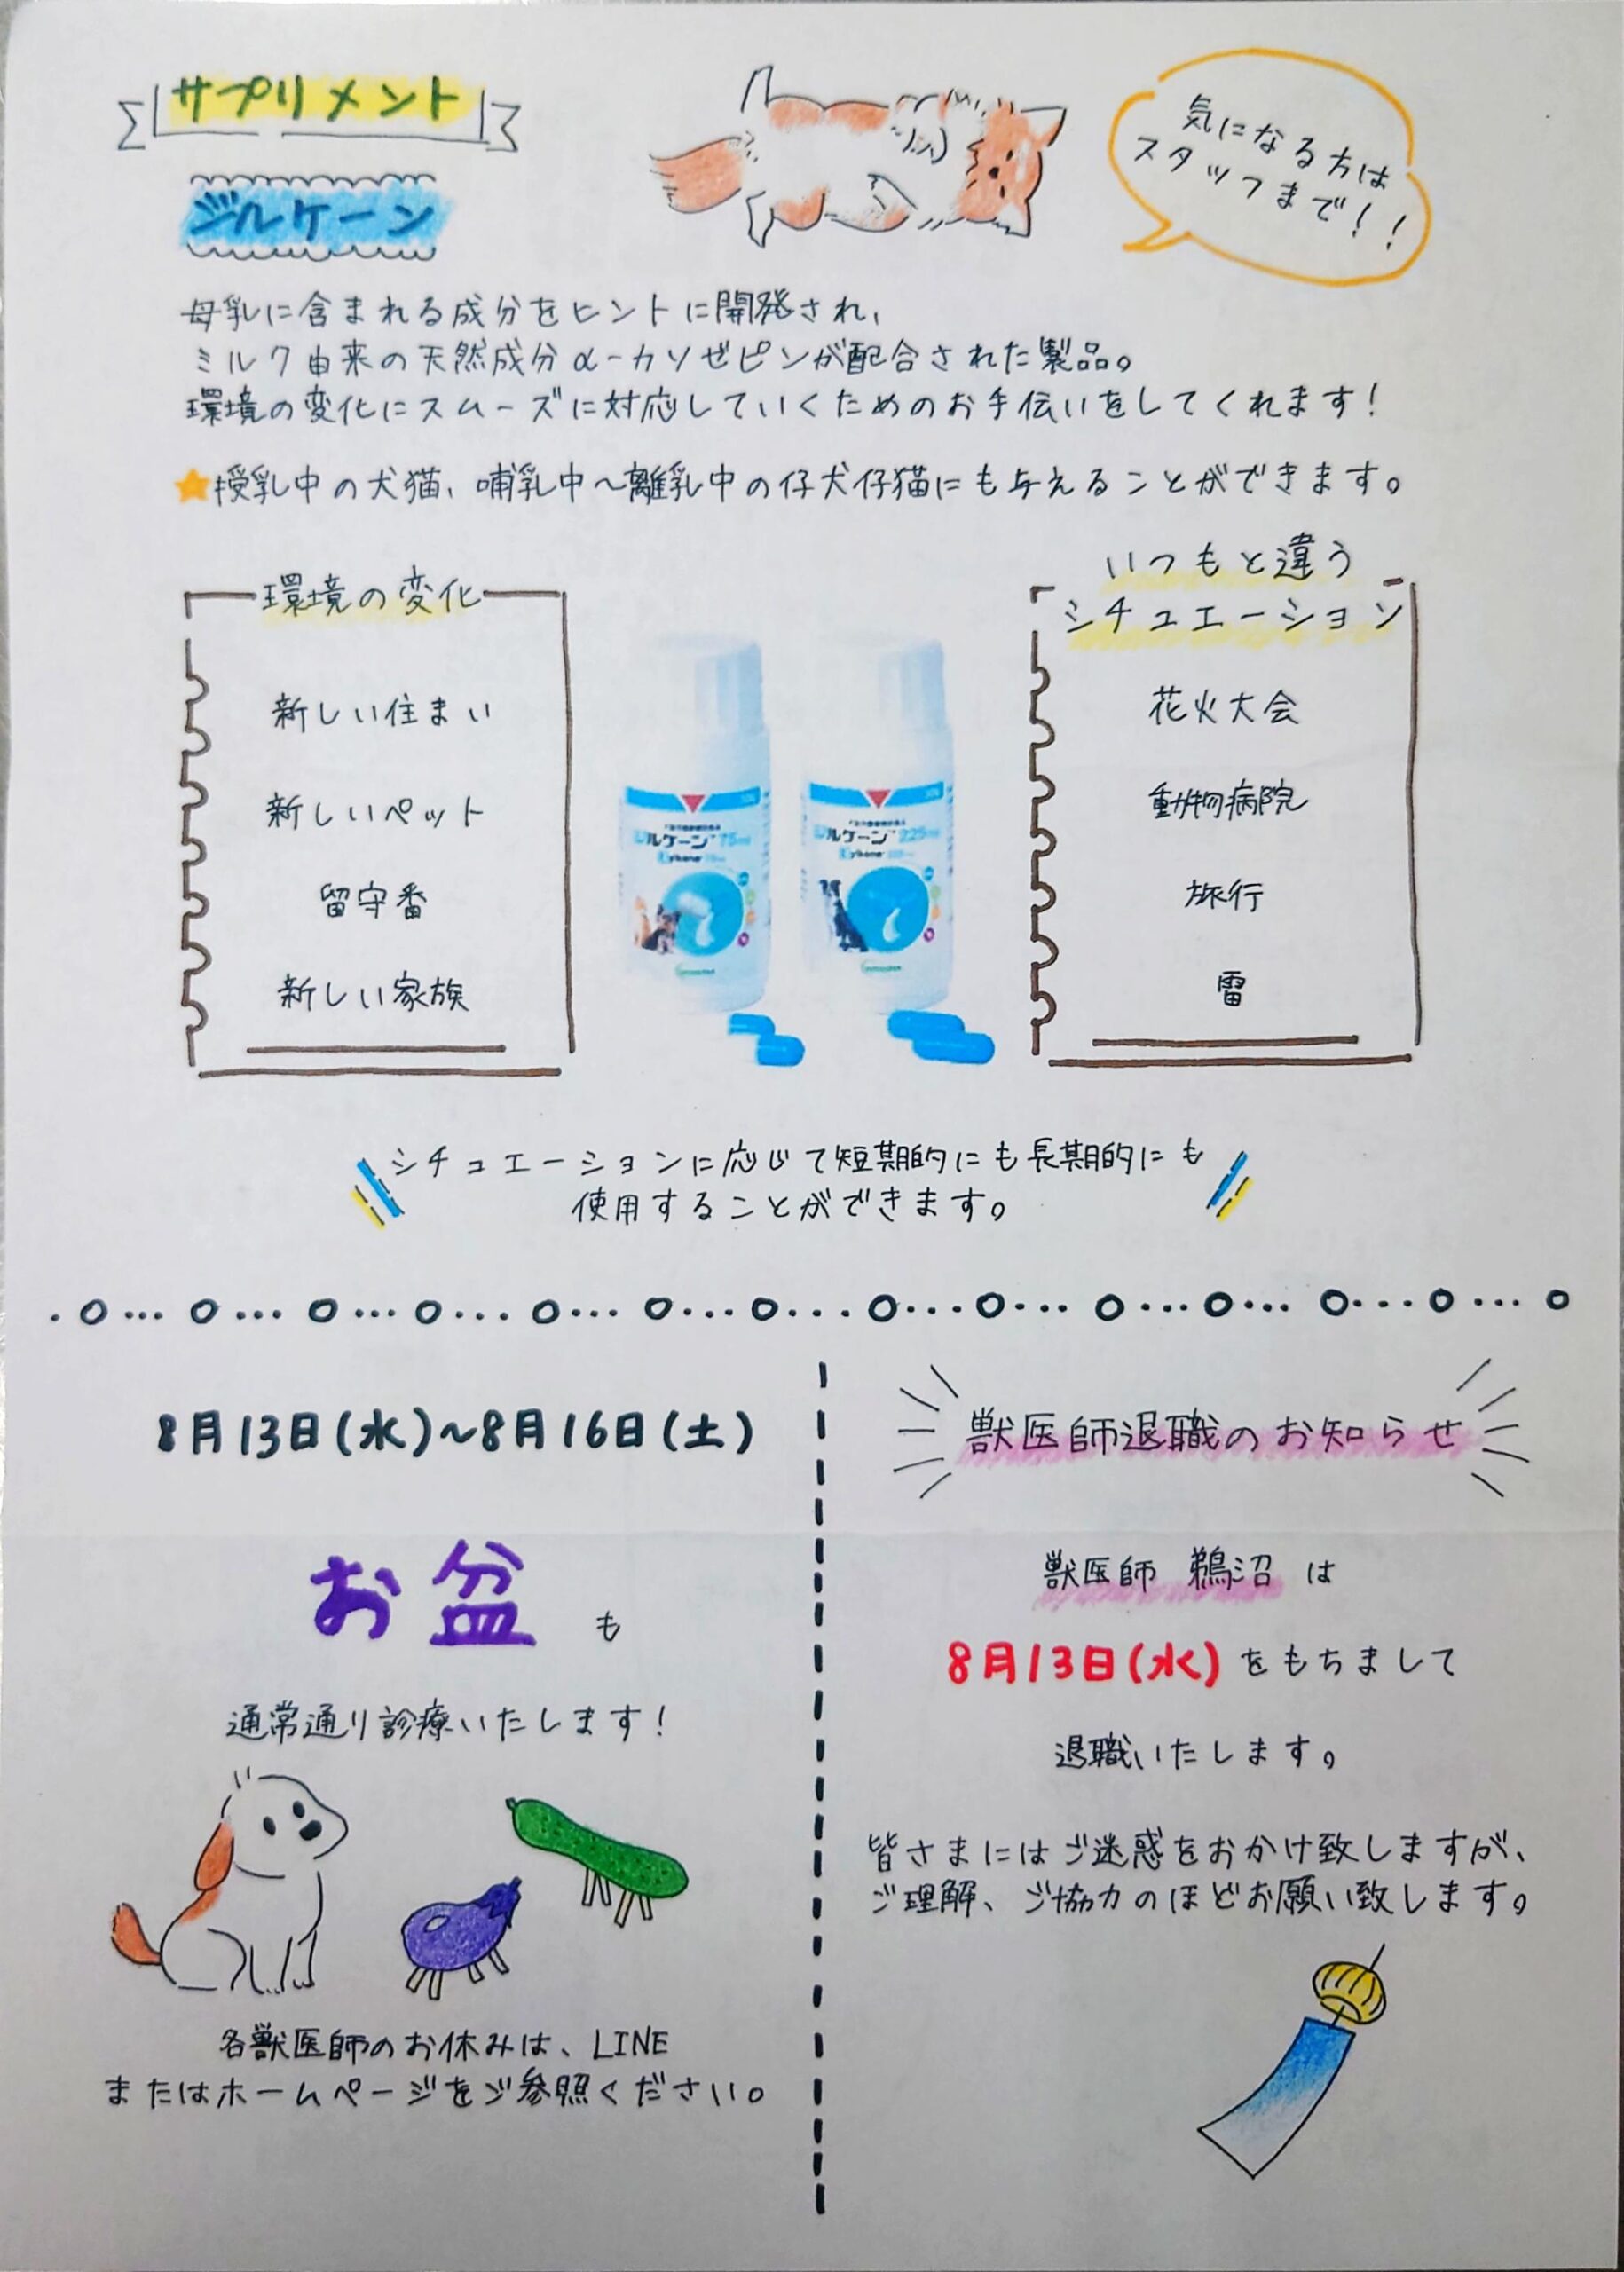 サプリメント
ジルケーン
気になる方は
スタッフまで！！
母乳に含まれる成分をヒントに開発され、
ミルク由来の天然成分α-カソゼピンが配合された製品。
環境の変化にスムーズに対応していくためのお手伝いをしてくれます！
★授乳中の犬猫、哺乳中～離乳中の仔犬仔猫にも与えることができます。
環境の変化
新しい住まい
新しいペット
留守番
新しい家族
ジルケーン 75mg
Zylkene
ジルケーン 225mg
Zylkene
いつもと違う
シチュエーション
花火大会
動物病院
旅行
雷
シチュエーションに応じて短期的にも長期的にも
使用することができます。
8月13日(水)～8月16日(土)
お盆も
通常通り診療いたします！
各獣医師のお休みは、LINE
またはホームページをご参照ください。
獣医師退職のお知らせ
獣医師 鵜沼 は
8月13日(水)をもちまして
退職いたします。
皆さまにはご迷惑をおかけ致しますが、
ご理解、ご協力のほどお願い致します。